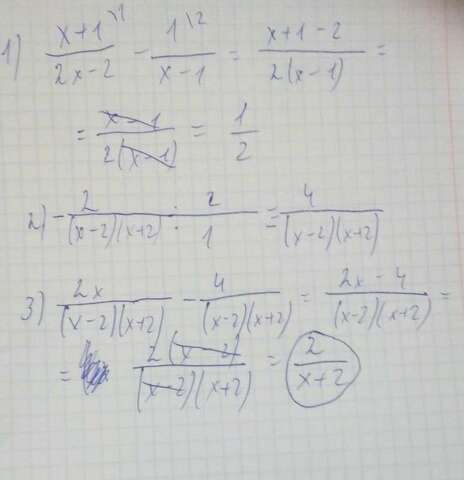 1) (x+1)\1/(2x-2) - 1\2/(x-1) = (x+1-2)/(2(x-1)) =
= (x-1)/(2(x-1)) = 1/2
2) - 2/((x-2)(x+2)) : 2/1 = 4/((x-2)(x+2))
3) 2x/((x-2)(x+2)) - 4/((x-2)(x+2)) = (2x-4)/((x-2)(x+2)) =
= 2(x-2)/((x-2)(x+2)) = 2/(x+2)